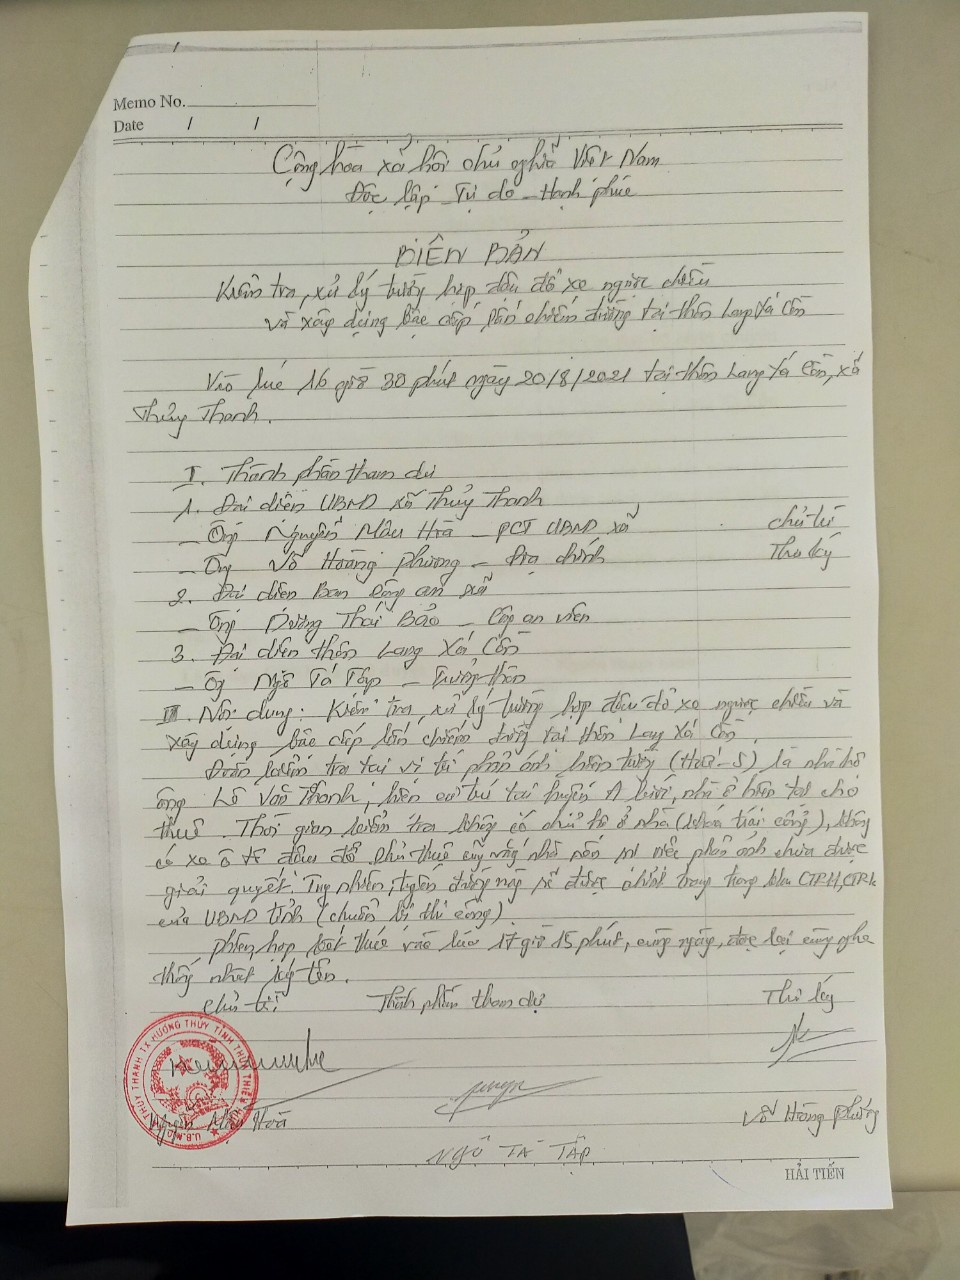 Memo No.
Date / /
Cộng hòa xã hội chủ nghĩa Việt Nam
Độc lập - Tự do - Hạnh phúc
BIÊN BẢN
Kiểm tra, xử lý trường hợp đậu đỗ xe ngược chiều
và xây dựng bậc cấp lấn chiếm đường tại thôn Lang Xá Cồn
Vào lúc 16 giờ 30 phút ngày 20/8/2021 tại thôn Lang Xá Cồn, xã
Thủy Thanh.
I. Thành phần tham dự
1. Đại diện UBND xã Thủy Thanh
- Ông Nguyễn Mậu Hòa - PCT UBND xã chủ trì
- Ông Võ Hoàng Phương - Địa chính Thư ký
2. Đại diện Ban Công an xã
- Ông Dương Thái Bảo - Công an viên
3. Đại diện thôn Lang Xá Cồn
- Ông Ngô Tá Tập - Trưởng thôn
II. Nội dung: Kiểm tra, xử lý trường hợp đậu đỗ xe ngược chiều và
xây dựng bậc cấp lấn chiếm đường tại thôn Lang Xá Cồn.
Đoàn kiểm tra tại vị trí phản ánh hiện trường (Huế-S) là nhà hộ
ông Lê Văn Thanh, hiện cư trú tại huyện A Lưới, nhà ở hiện tại cho
thuê. Thời gian kiểm tra không có chủ hộ ở nhà (khóa trái cổng), không
có xe ô tô đậu đỗ. chủ thuê cũng vắng nhà nên sự việc phản ánh chưa được
giải quyết. Tuy nhiên, tuyến đường này sẽ được chỉnh trang trong
của UBND tỉnh (chuẩn bị thi công).
phiên họp kết thúc vào lúc 17 giờ 15 phút, cùng ngày, đọc lại cùng nghe
thống nhất ký tên.
Chủ trì Thành phần tham dự Thư ký
U.B.N.D XÃ THỦY THANH TX.HƯƠNG THỦY TỈNH THỪA THIÊN HUẾ
Nguyễn Mậu Hòa Võ Hoàng Phương
NGÔ TÁ TẬP
HẢI TIẾN